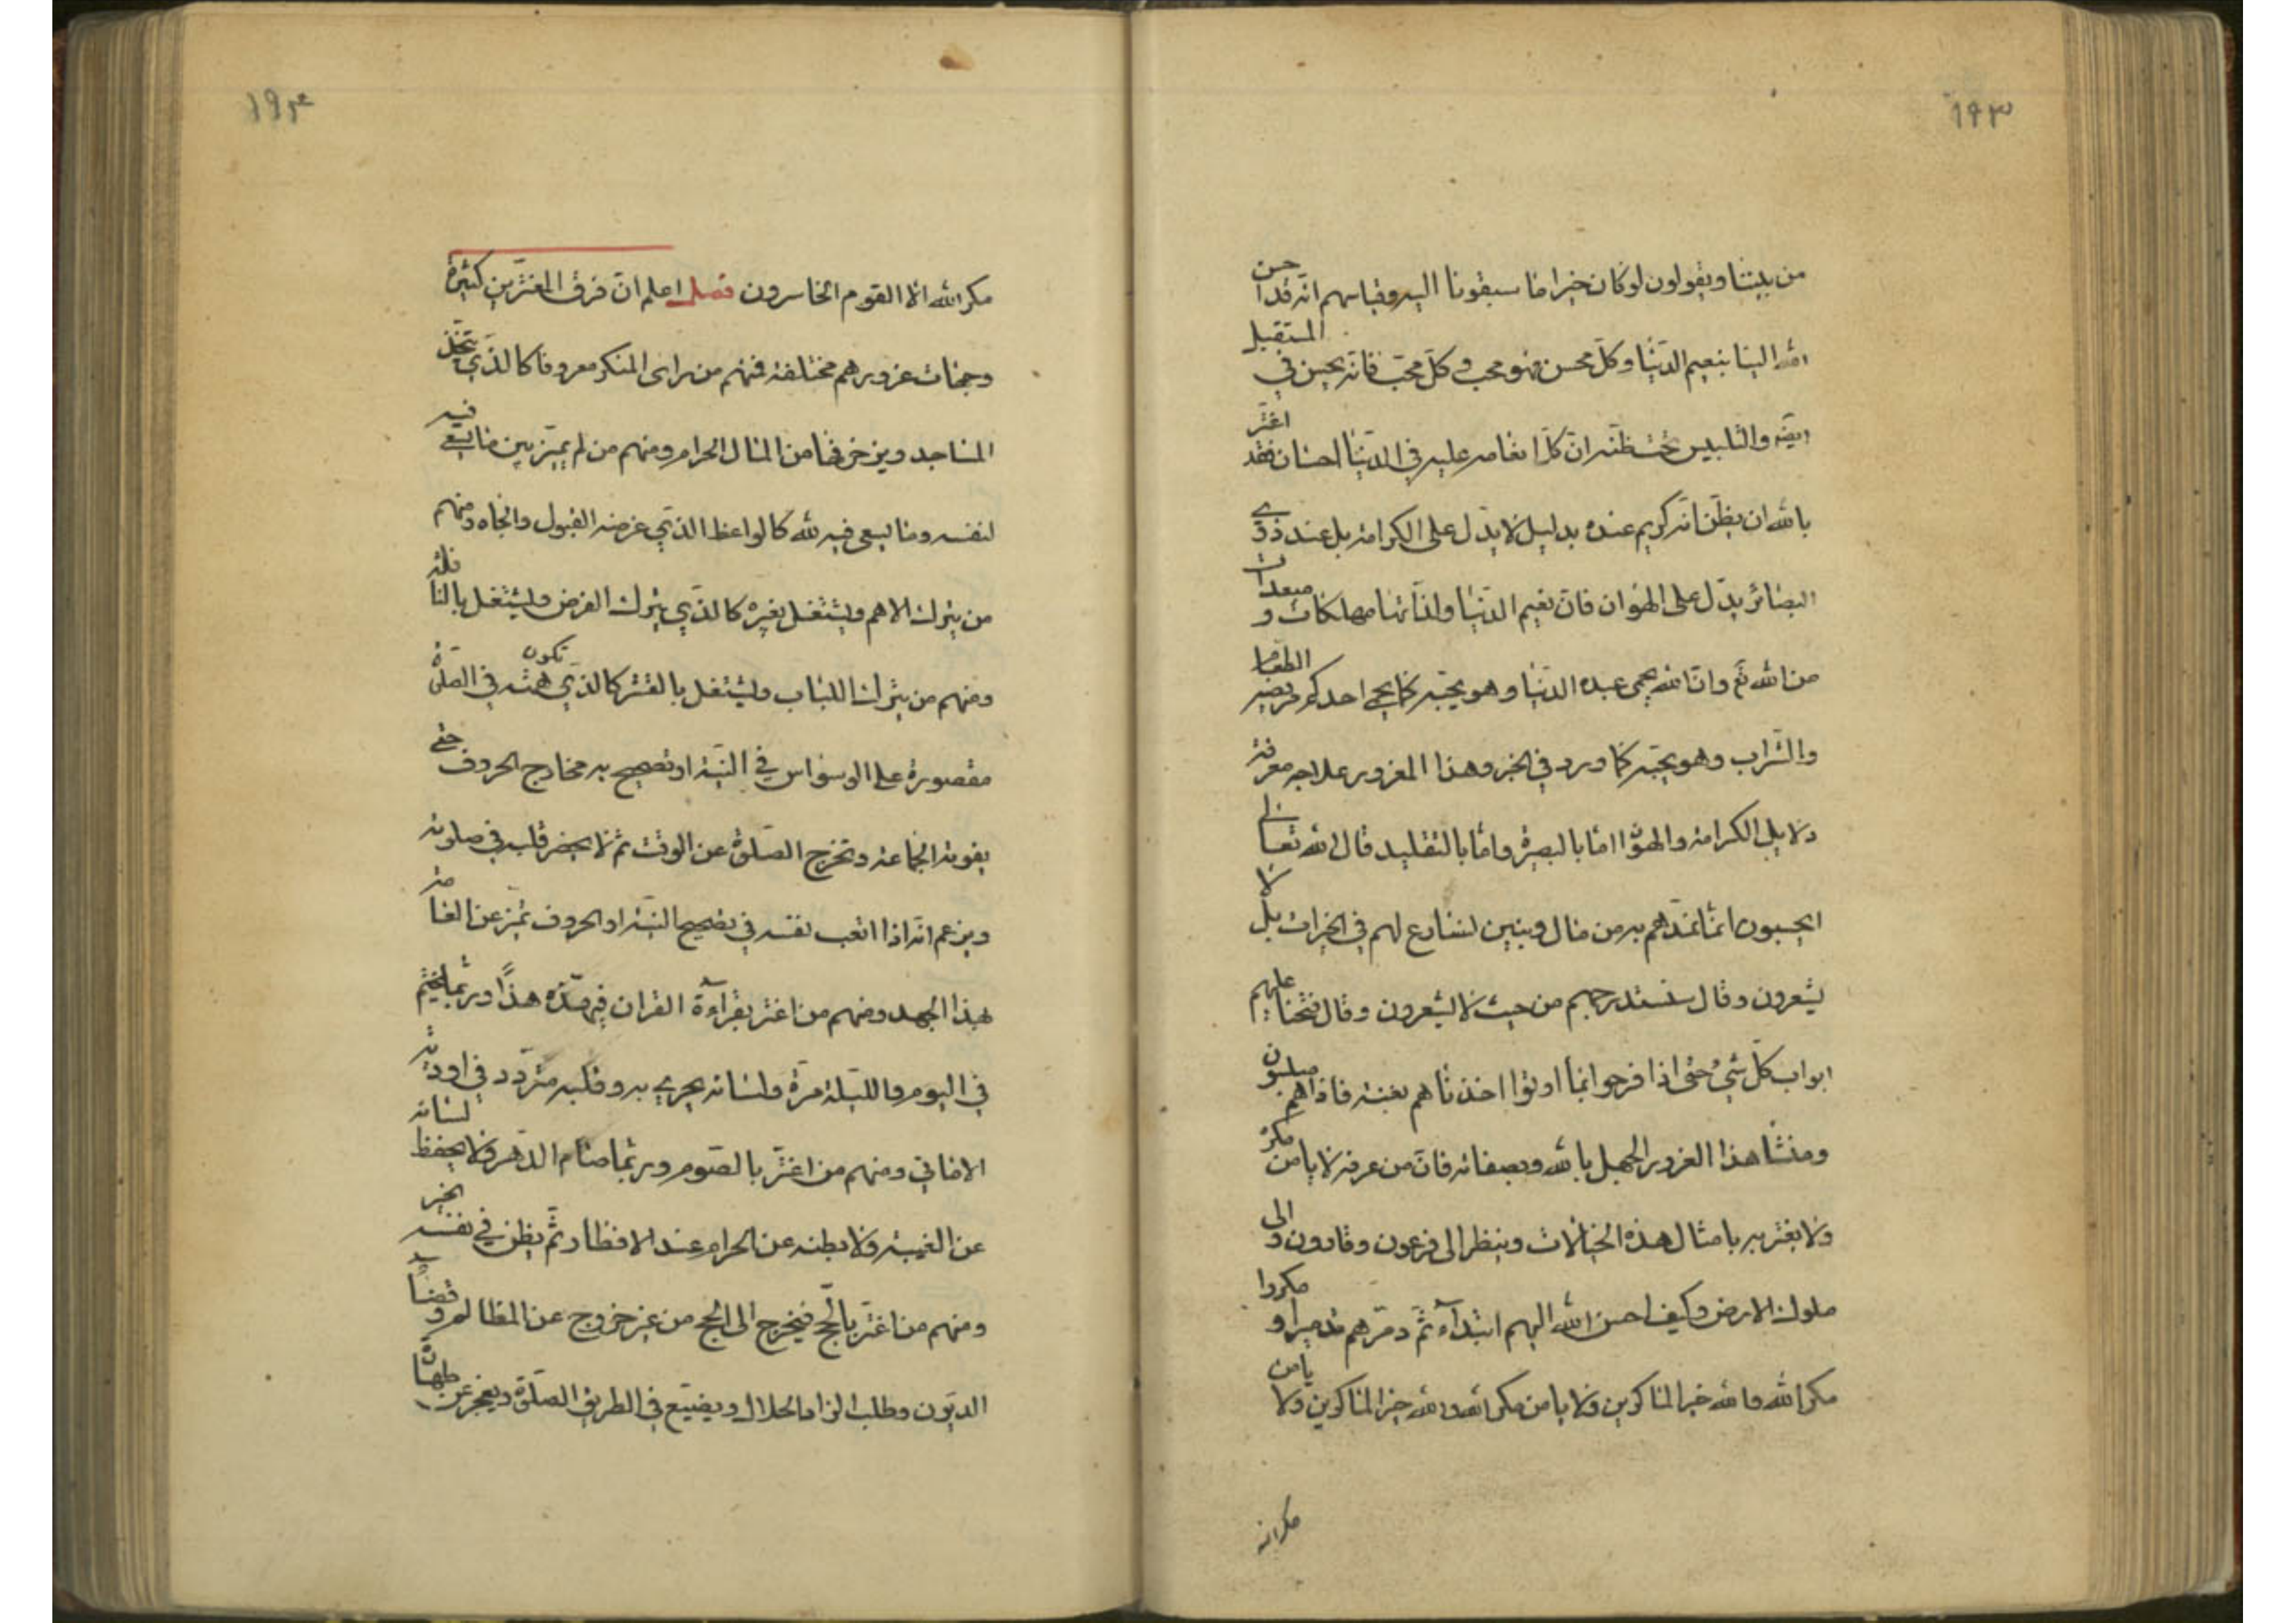 ١٩٣
من بيننا ويقولون لو كان خيرا ما سبقونا اليه وقياسهم انه قد احسن
الله الينا بنعيم الدنيا وكل محسن فهو محب وكل محب فانه يحسن في المستقبل
ايضا والتلبيس تحت ظنه ان كل انعام عليه في الدنيا احسان فقد اغتر
بالله ان يظن انه كريم عنده بدليل لا يدل على الكرامة بل عند ذوي
البصائر يدل على الهوان فان نعيم الدنيا ولذاتها مهلكات ومبعدات
من الله تع وان الله يحمي عبده الدنيا وهو يحبه كما يحمي احدكم مريضه الطعام
والشراب وهو يحبه كما ورد في الخبر وهذا الغرور علاجه معرفة
دلايل الكرامة والهوان اما بالبصيرة واما بالتقليد قال الله تعالى
ايحسبون انما نمدهم به من مال وبنين نسارع لهم في الخيرات بل لا
يشعرون وقال سنستدرجهم من حيث لا يشعرون وقال فتحنا عليهم
ابواب كل شيء حتى اذا فرحوا بما اوتوا اخذناهم بغتة فاذا هم مبلسون
ومنشا هذا الغرور الجهل بالله وبصفاته فان من عرفه لا يامن مكره
ولا يغتر به بامثال هذه الخيالات وينظر الى فرعون وقارون والى
ملوك الارض وكيف احسن الله اليهم ابتداء ثم دمرهم تدميرا ومكروا
مكر الله والله خير الماكرين ولا يامن مكر الله والله خير الماكرين ولا يامن
مكر الله
١٩٤
مكر الله الا القوم الخاسرون فصل اعلم ان فرق المغترين كثيرة
وجهات غرورهم مختلفة فمنهم من راى المنكر معروفا كالذي يتخذ
المساجد ويزخرفها من المال الحرام ومنهم من لم يميز بين ما يسعى فيه
لنفسه وما يسعى فيه لله كالواعظ الذي غرضه القبول والجاه ومنهم
من يترك الاهم ويشتغل بغيره كالذي يترك الفرض ويشتغل بالنافلة
ومنهم من يترك اللباب ويشتغل بالقشر كالذي تكون همته في الصلوة
مقصورة على الوسواس في النية او تصحيح به مخارج الحروف حتى
يفوته الجماعة وتخرج الصلوة عن الوقت ثم لا يحضر قلبه في صلوته
ويزعم انه اذا اتعب نفسه في تصحيح النية او الحروف تميز عن العامة
بهذا الجهد ومنهم من اغتر بقراءة القران فيهذه هذا وربما يختم
في اليوم والليلة مرة ولسانه يجري به وقلبه متردد في اودية
الاماني ومنهم من اغتر بالصوم وربما صام الدهر ولا يحفظ لسانه
عن الغيبة ولا بطنه عن الحرام عند الافطار ثم يظن في نفسه الخير
ومنهم من اغتر بالحج فيخرج الى الحج من غير خروج عن المظالم وقضاء
الديون وطلب الزاد الحلال ويضيع في الطريق الصلوة ويعجز عن طهارة